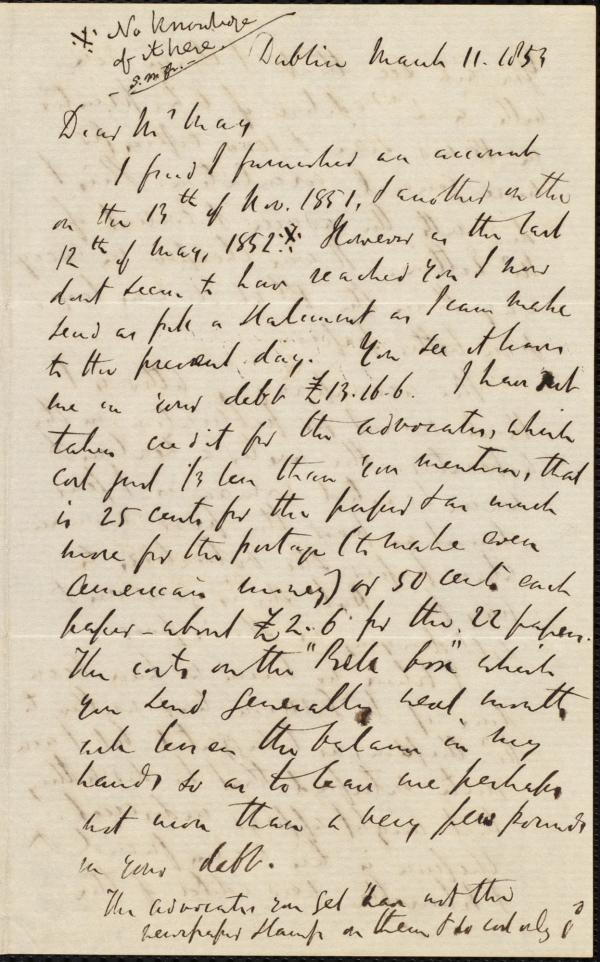 ·X· No knowledge
of it here.
- S. M. Jr. -
Dublin March 11. 1853
Dear Mr May
I find I furnished an account
on the 13th of Nov. 1851, & another on the
12th of May, 1852 ·X· However as the last
dont seem to have reached you I now
send as full a statement as I can make
to the present day. You see it leaves
me in your debt £13.16.6. I have not
taken credit for the advocates, which
cost just 1/3 less than you mention, that
is 25 cents for the paper & as much
more for the postage (to make even
American money) or 50 cents each
paper - about £2.6 for the 22 papers.
The costs on the "Belk box" which
you send generally next month
will lessen the balance in my
hands so as to leave me perhaps
not more than a very few pounds
in your debt.
The advocates you get have not the
newspaper stamp on them & so cost only